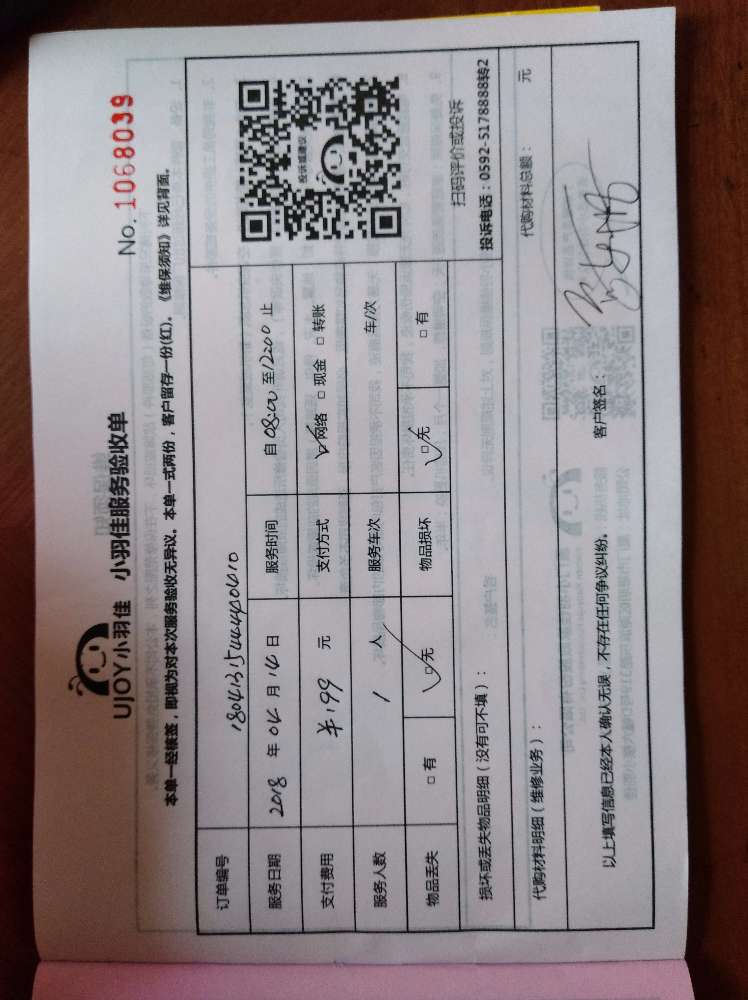 UJOY小羽佳 小羽佳服务验收单
No. 1068039
本单一经核签，即视为对本次服务验收无异议。本单一式两份，客户留存一份(红)。《维保须知》详见背面。
订单编号
服务日期 2018 年 04 月 14 日 服务时间 自 08:00 至 12:00 止
支付费用 ¥199 元 支付方式 ☑网络 □ 现金 □ 转账
服务人数 1 人 服务车次 车/次
物品丢失 □ 有 ☑无 物品损坏 ☑无 □ 有
投诉或建议
扫码评价或投诉
投诉电话：0592-5178888转2
损坏或丢失物品明细（没有可不填）：
代购材料明细（维修业务）： 代购材料总额： 元
以上填写信息已经本人确认无误，不存在任何争议纠纷。 客户签名：